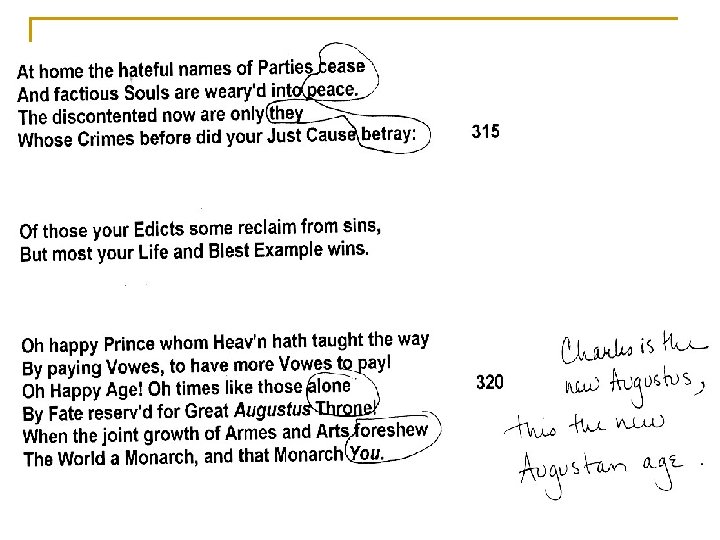 At home the hateful names of Parties cease
And factious Souls are weary'd into peace.
The discontented now are only they
Whose Crimes before did your Just Cause betray: 315
Of those your Edicts some reclaim from sins,
But most your Life and Blest Example wins.
Oh happy Prince whom Heav'n hath taught the way
By paying Vowes, to have more Vowes to pay!
Oh Happy Age! Oh times like those alone 320
By Fate reserv'd for Great Augustus Throne!
When the joint growth of Armes and Arts foreshew
The World a Monarch, and that Monarch You.
Charles is the
new Augustus,
this the new
Augustan age.